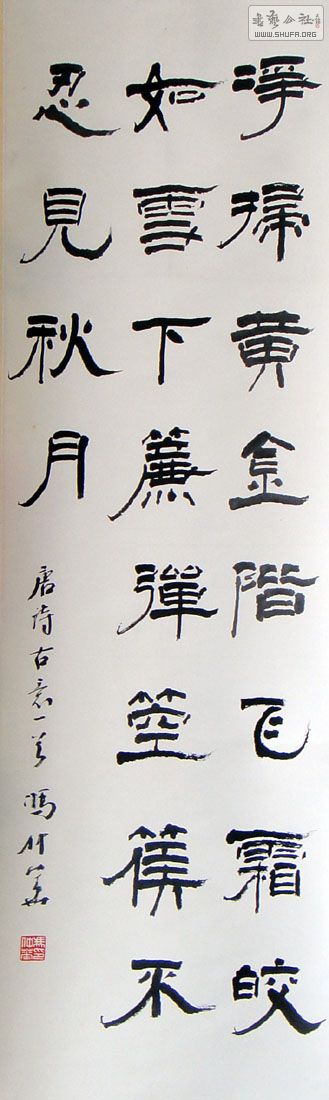 書藝公社
WWW.SHUFA.ORG
净掃黄金階飞霜皎
如雪下簾彈箜篌不
忍見秋月
唐詩古意一首 馮